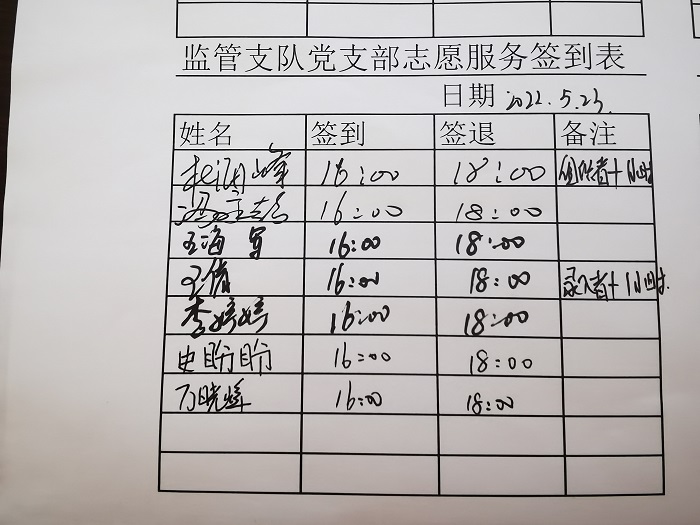 监管支队党支部志愿服务签到表
日期 2022.5.23.
姓名 签到 签退 备注
16:00 18:00 组织者+1小时
16:00 18:00
王海军 16:00 18:00
王倩 16:00 18:00 录入者+1小时
李婷婷 16:00 18:00
史盼盼 16:00 18:00
万晓辉 16:00 18:00